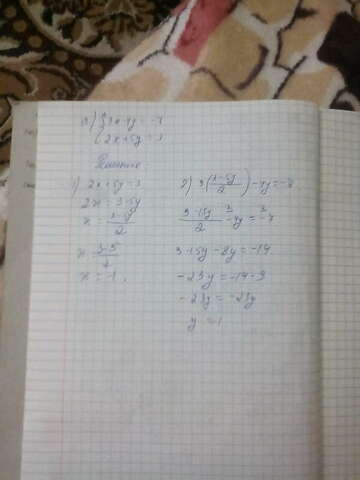 {3x-4y=-7
2x+5y=3
Решение:
1) 2x+5y=3
2x=3-5y
x=\frac{3-5y}{2}
x=\frac{3-5}{2}
x=-1.
2) 3(\frac{3-5y}{2})-4y=-7
\frac{9-15y}{2}-4y=-7
9-15y-8y=-14
-23y=-14-9
-23y=-23y
y=1